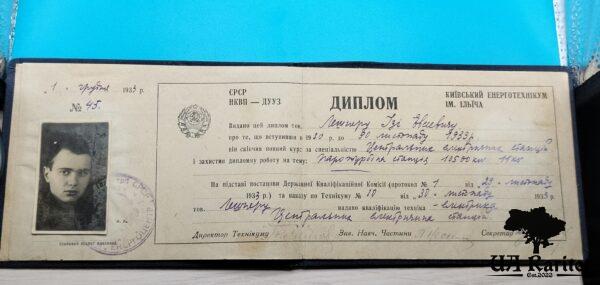 "1" грудня 1933 р.
№ 45.
ЄРСР
НКВП — ДУУЗ
ДИПЛОМ
КИЇВСЬКИЙ ЕНЕРГОТЕХНІКУМ
ІМ. ІЛЬЇЧА
Видано цей диплом тов.
про те, що вступивши в 1930 до 30 листопаду 1933 р.
він скінчив повний курс за спеціальністю Центральні електричні станції
і захистив дипломну роботу на тему: станція
На підставі постанови Державної Кваліфікаційної Комісії (протокол № 1 від 29 листопаду
1933 р.) та наказу по Технікуму № 10 від 30 листопаду 1933 р.
тов. надано кваліфікацію техніка електрика
Центральні електричні станції
Директор Технікуму Зав. Навч. Частини Секретар
UA Rarite
Est.2022